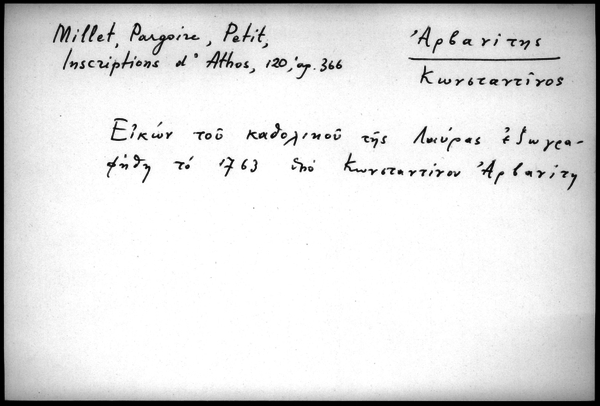 Millet, Pargoire, Petit,
Inscriptions d' Athos, 120, ἀρ. 366
Ἀρβανίτης
Κωνσταντῖνος
Εἰκών τοῦ καθολικοῦ τῆς Λαύρας ἐζωγρα-
φήθη τό 1763 ὑπό Κωνσταντίνου Ἀρβανίτη